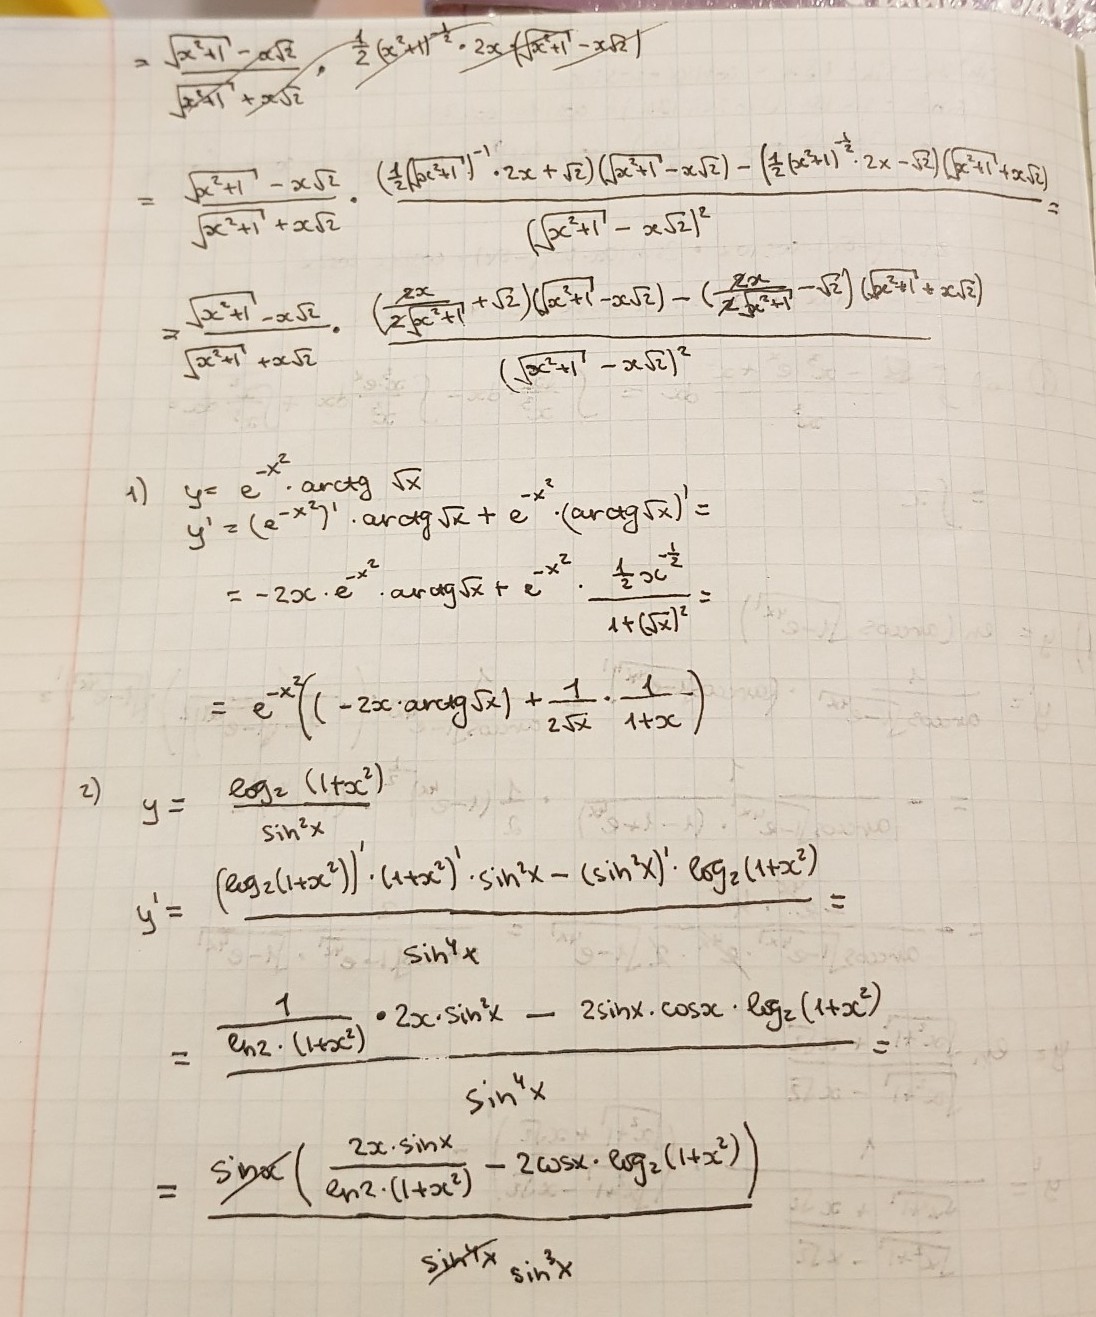 = (√(x²+1) - x√2)/(√(x²+1) + x√2) · 1/2 (x²+1)^(-1/2) · 2x · (√(x²+1) - x√2)
= (√(x²+1) - x√2)/(√(x²+1) + x√2) · ((1/2(√(x²+1))^(-1) · 2x + √2)(√(x²+1) - x√2) - (1/2(x²+1)^(-1/2) · 2x - √2)(√(x²+1) + x√2))/(√(x²+1) - x√2)² =
= (√(x²+1) - x√2)/(√(x²+1) + x√2) · ((2x/(2√(x²+1)) + √2)(√(x²+1) - x√2) - (2x/(2√(x²+1)) - √2)(√(x²+1) + x√2))/(√(x²+1) - x√2)²
1) y = e^(-x²) · arctg √x
y' = (e^(-x²))' · arctg √x + e^(-x²) · (arctg √x)' =
= -2x · e^(-x²) · arctg √x + e^(-x²) · (1/2 x^(-1/2))/(1+(√x)²) =
= e^(-x²)((-2x · arctg √x) + 1/(2√x) · 1/(1+x))
2) y = log₂(1+x²)/sin²x
y' = ((log₂(1+x²))' · (1+x²)' · sin²x - (sin²x)' · log₂(1+x²))/sin⁴x =
= (1/(ln2 · (1+x²)) · 2x · sin²x - 2sinx · cosx · log₂(1+x²))/sin⁴x =
= sinx((2x · sinx)/(ln2 · (1+x²)) - 2cosx · log₂(1+x²))/sin⁴x sin³x